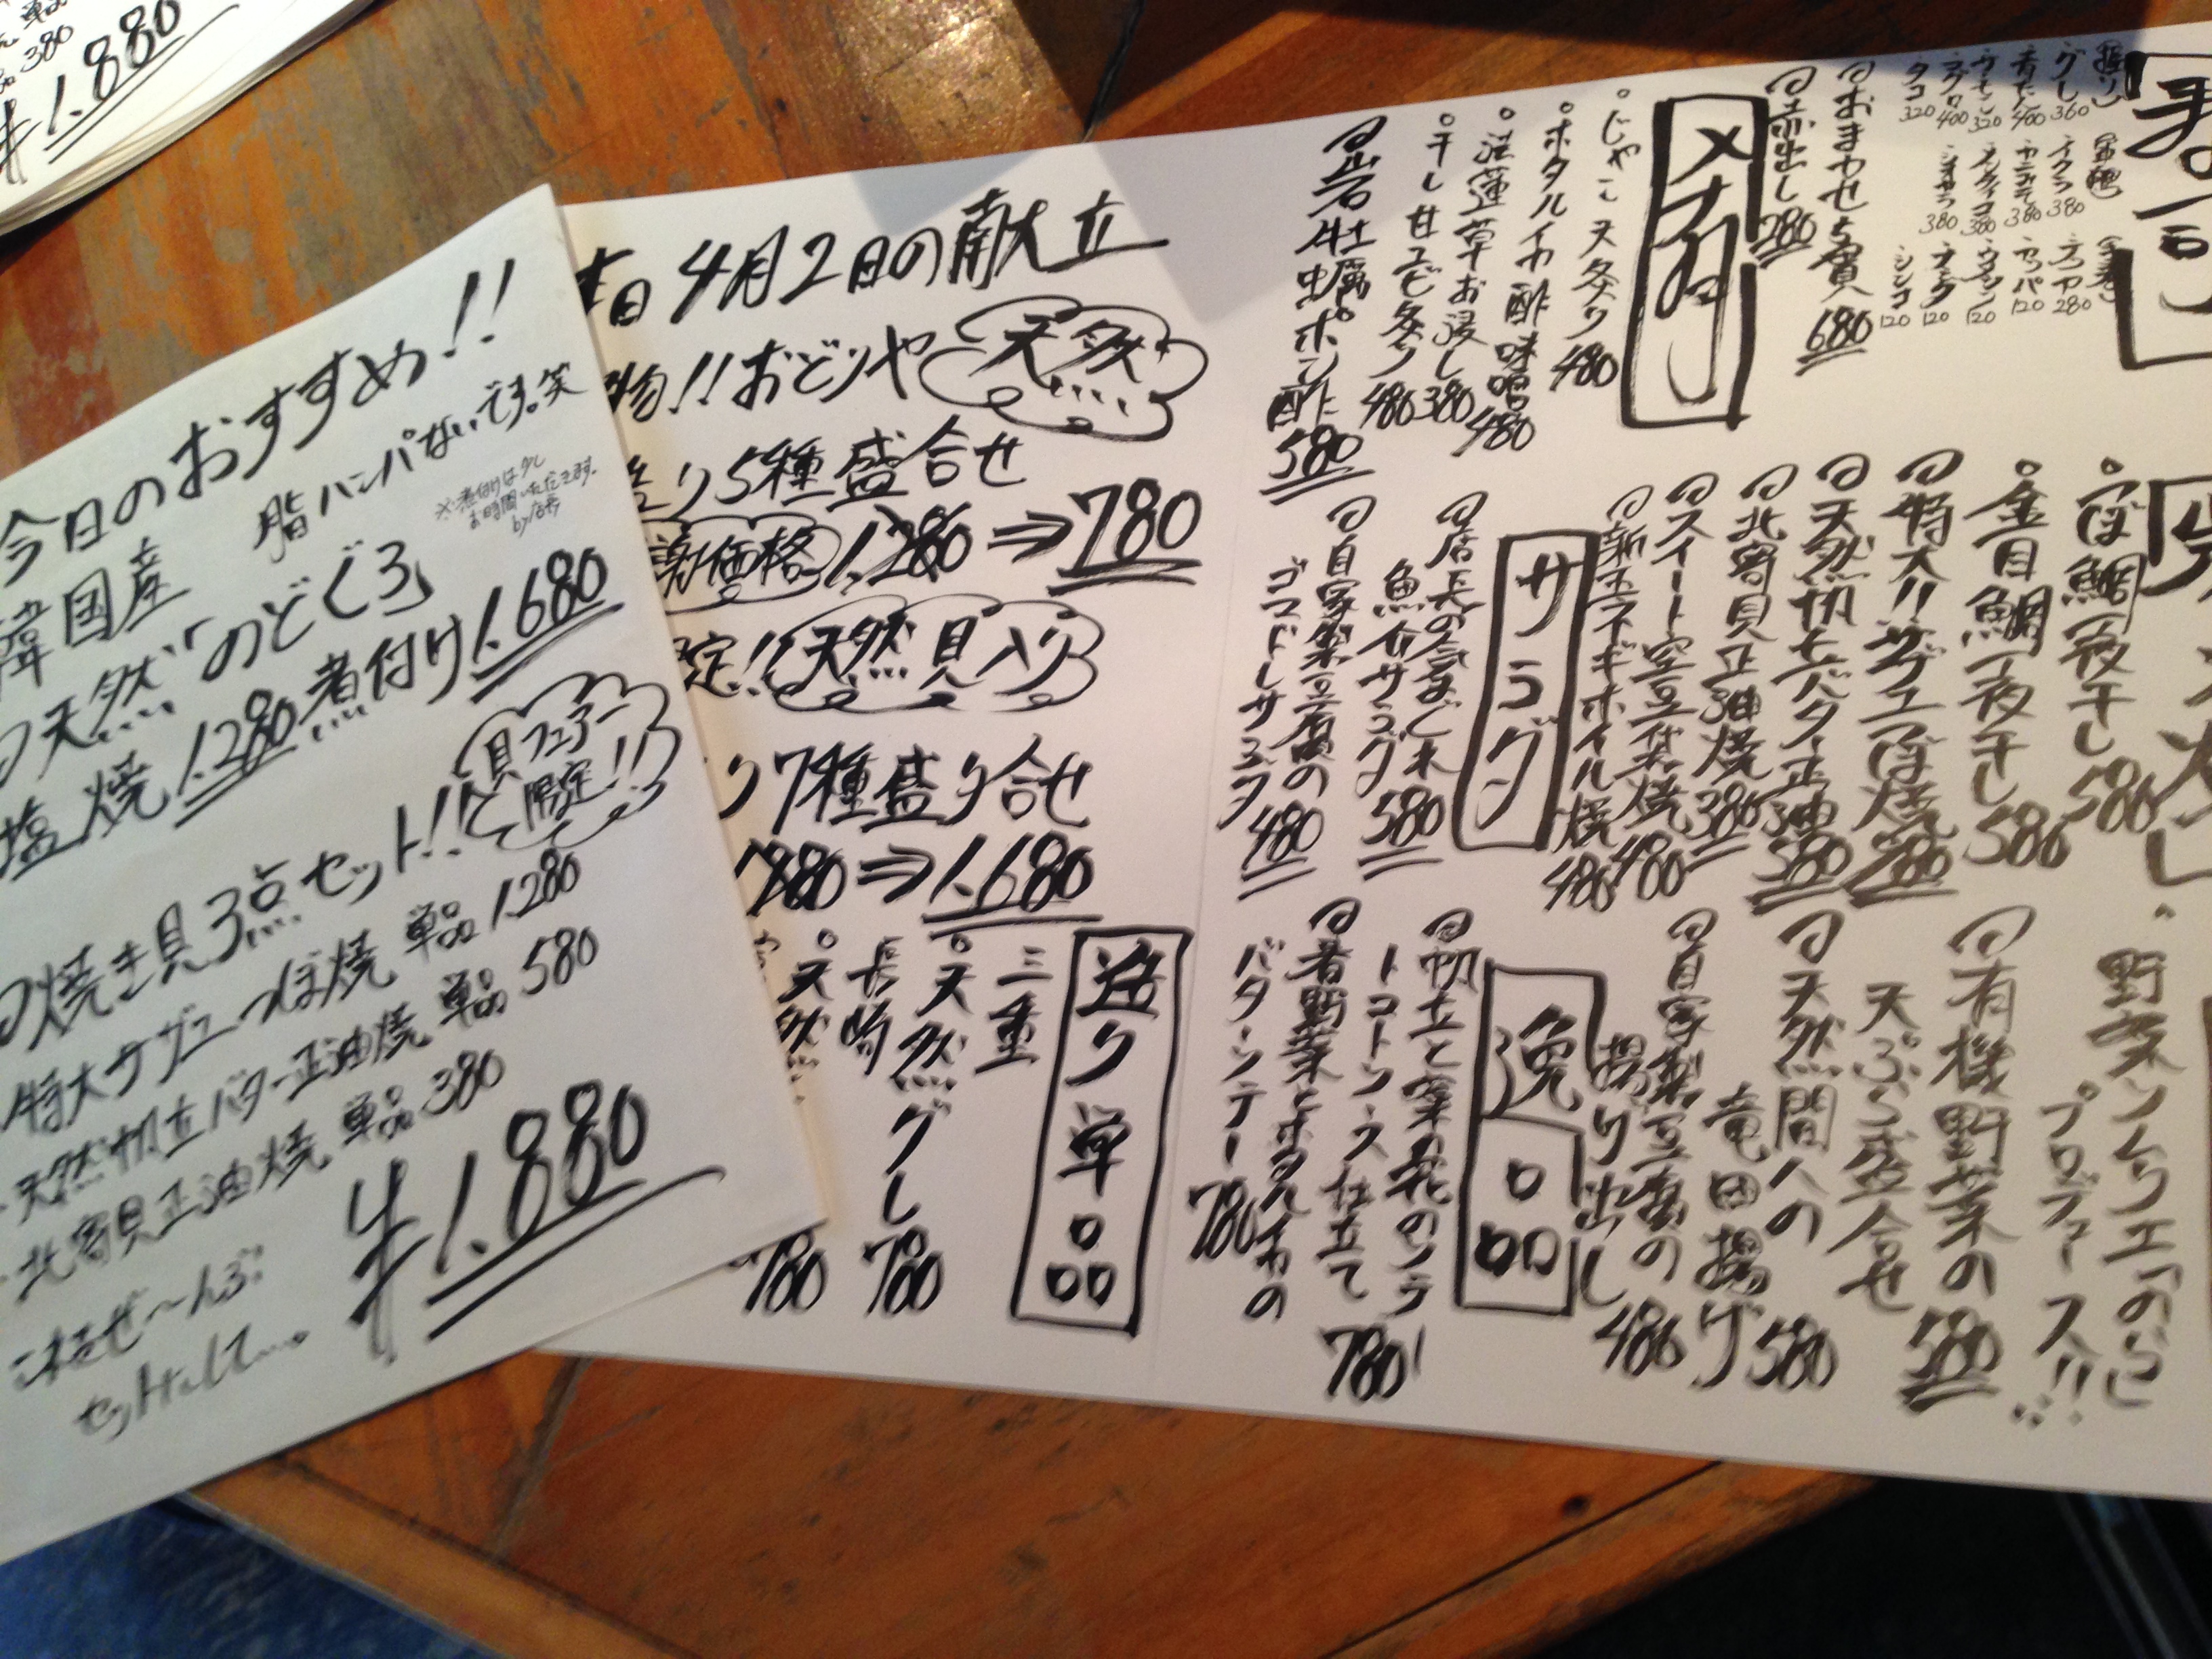 1.880
380
今日のおすすめ!!
韓国産
脂ハンパないです。笑
※煮付けは少し
お時間いただきます。
by店長
天然「のどぐろ」
塩焼 1.280 煮付け 1.680
焼き貝3点セット!!
貝フェアー
限定!!
特大サザエつぼ焼 単品 1.280
天然帆立バター正油焼 単品 580
北寄貝正油焼 単品 380
これぜ〜んぶ
セットにして…。
¥1.880
4月2日の献立
物!!おどりや 天然
り5種盛合せ
謝価格 1.280⇒780
定!! 天然貝入り
り7種盛り合せ
280⇒1.680
造り単品
三重
天然グレ 780
長崎
天然
780
寿司
(握り)
グレ 360
マグロ 400
タコ 320
(軍艦)
イクラ 380
(手巻)
おまかせ5貫 680
280
つぼ鯛一夜干し 580
金目鯛一夜干し 580
特大!!サザエつぼ焼
天然帆立バター正油 580
北寄貝正油焼 380
スイート空豆炭焼 480
新玉ネギホイル焼 480
じゃこ天炙り 480
ホタルイカ酢味噌 480
菠薐草お浸し 380
干し甘エビ炙り 480
岩牡蠣ポン酢 580
サラダ
店長の気まぐれ
魚介サラダ 580
自家製豆腐の
ゴマドレサラダ 480
野菜ソムリエ「のらじ」
プロデュース!!
有機野菜の 580
天ぷら盛合せ
天然間八の
竜田揚げ 580
自家製豆腐の
揚げ出し 480
逸品
帆立と菜の花のソテー
トコトンウス仕立て 780
春野菜とホタルイカの
バターソテー 780